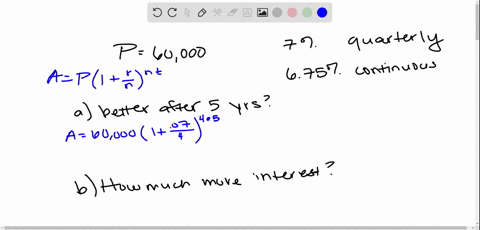 P = 60,000
7% quarterly
A = P(1 + r/n)^nt
6.75% continuous
a) better after 5 yrs?
A = 60,000(1 + .07/4)^4•5
b) How much more interest?